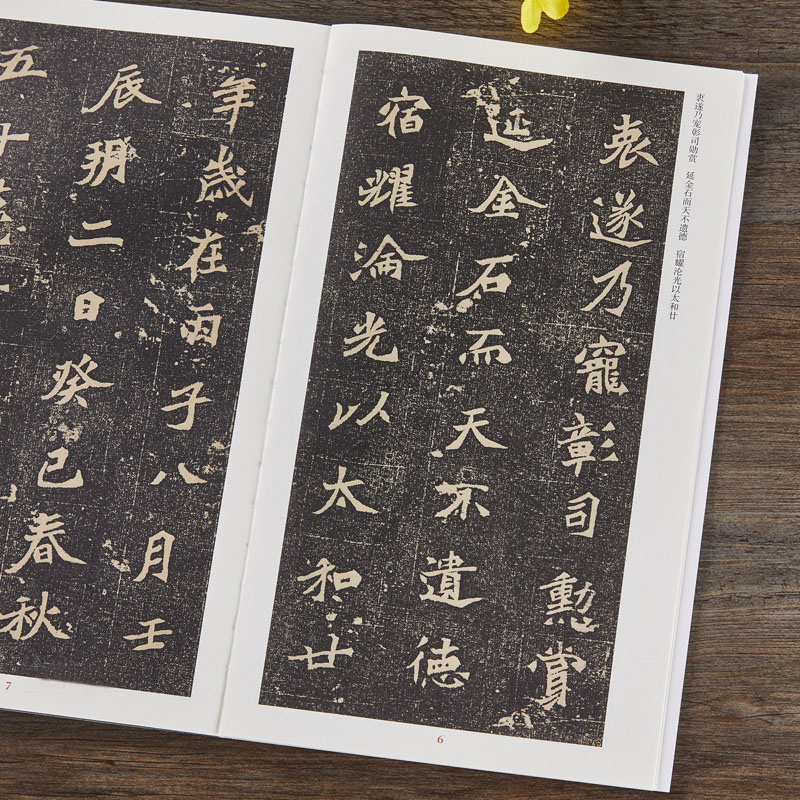 衷遂乃宠彰司勋赏　延金石而天不遗德　宿耀沦光以太和廿
衷遂乃寵彰司勳賞
延金石而天不遺德
宿耀淪光以太和廿
6
年歲在丙子八月壬
辰朔二日癸巳春秋
五十
7